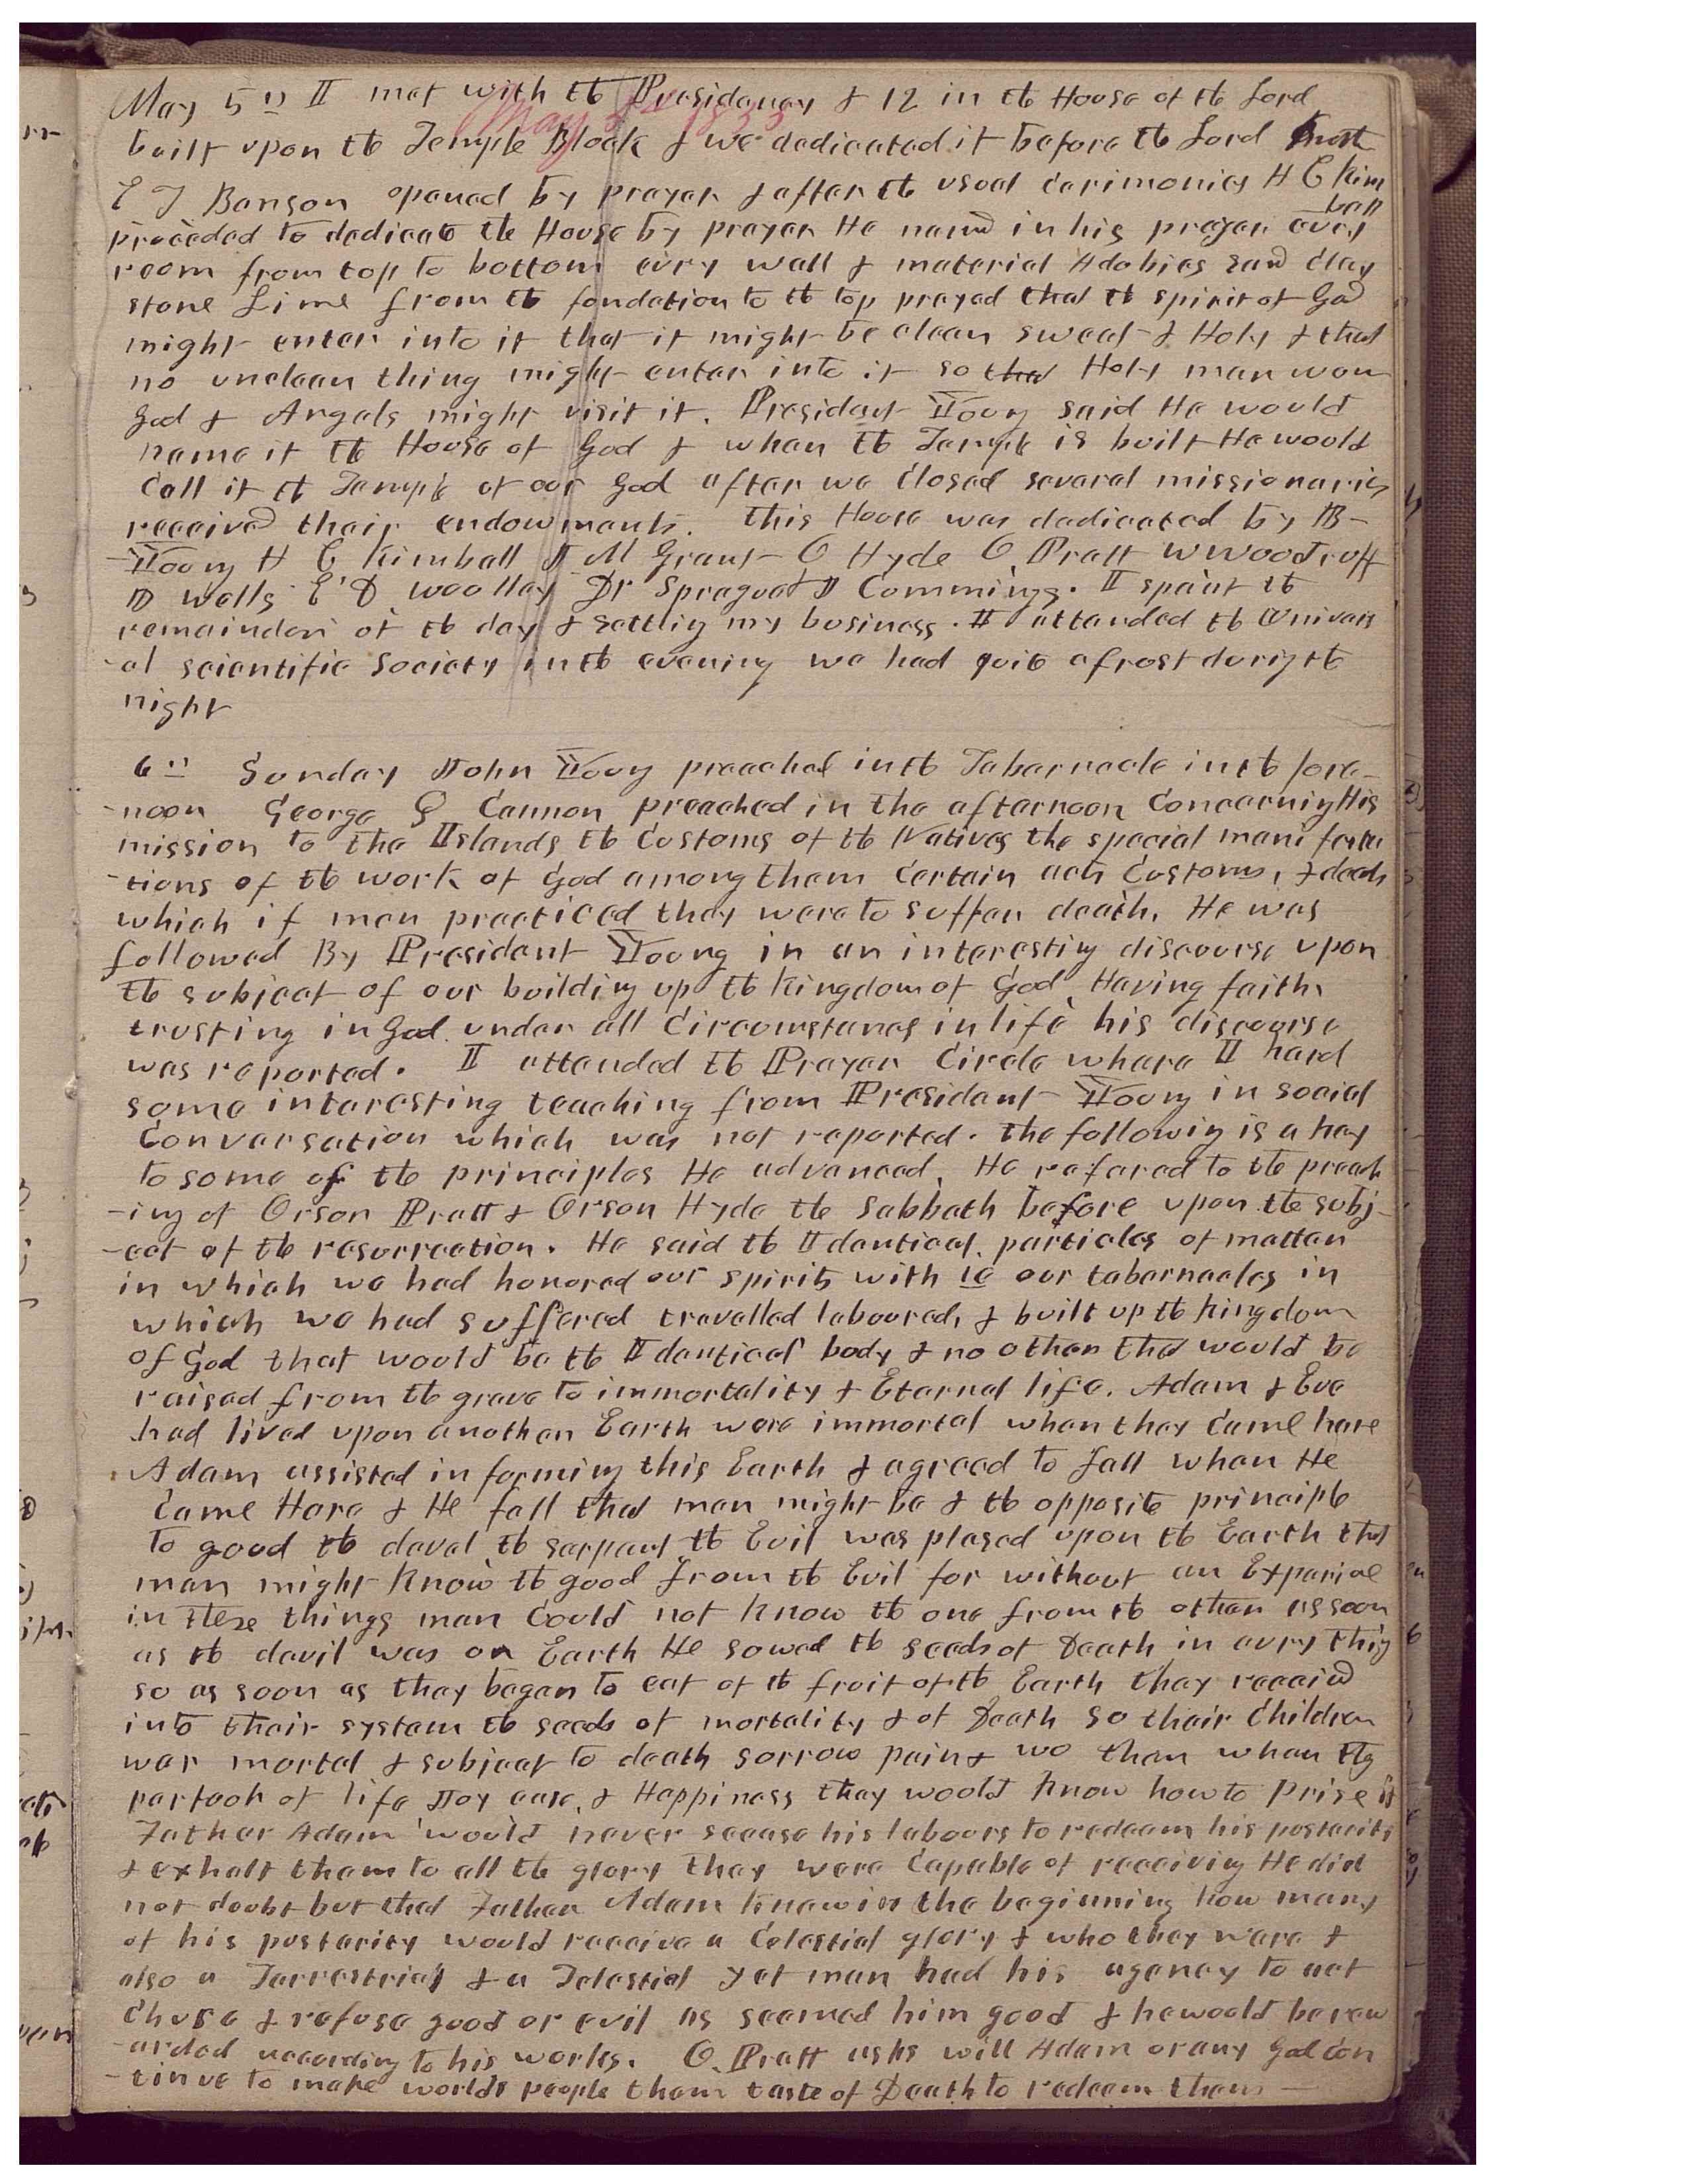 May 5th I met with the Presidency & 12 in the House of the Lord
May 5th 1855
built upon the Temple Block & we dedicated it before the Lord
E T Benson opened by prayer & after the usual cerimonies H C Kim
ball
proceeded to dedicate the House by prayer He named in his prayer evry
room from top to bottom evry wall & material Adobies sand Clay
stone Lime from the fondation to the top prayed that the spirit of God
might enter into it that it might be clean sweet & Holy & that
no unclean thing might enter into it so that Holy men
God & Angels might visit it. President Young said He would
name it the House of God & when the Temple is built He would
Call it the Temple of our God after we Closed several missionaries
received their endowments. This House was dedicated by B-
-Young H C Kimball J M Grant O Hyde O Pratt W Woodruff
D Wells E D Woolley Dr Sprague & J Commings. I spent the
remainder of the day & settling my business. I attended the Univers
-al scientific Society in the evening we had quite a frost during the
night
6th Sunday John Young preached in the Tabernacle in the fore-
-noon George Q Cannon preached in the afternoon Concerning His
mission to the Islands the Customs of the Natives the special manifesta
-tions of the work of God among them Certain acts Customs, & deeds
which if men practiced they were to suffer death. He was
followed By President Young in an interesting discourse upon
the subject of our building up the Kingdom of God, Having faith,
trusting in God under all Circumstances in life his discourse
was reported. I attended the Prayer Circle where I herd
some interesting teaching from President Young in social
Conversation which was not reported. the following is a key
to some of the principles He advanced. He refered to the preach
-ing of Orson Pratt & Orson Hyde the Sabbath before upon the subj-
-ect of the resurrection. He said the Identical particles of matter
in which we had honored our spirits with ie our tabernacles in
which we had suffered travelled laboured, & built up the Kingdom
of God that would be the Identical body & no other that would be
raised from the grave to immortality & Eternal life. Adam & Eve
had lived upon another Earth were immortal when they Came here
Adam assisted in forming this Earth & agreed to fall when He
Came Here & He fell that man might be & the opposite principle
to good the devel the serpent the Evil was plased upon the Earth that
man might Know the good from the Evil for without an Experience
in these things man Could not Know the one from the other as soon
as the devil was on Earth He sowed the seeds of Death in evry thing
so as soon as they began to eat of the fruit of the Earth they received
into their system the seeds of mortality & of Death so their Children
wer mortal & subject to death sorrow pain & wo then when they
partook of life Joy ease, & Happiness they would Know how to Prise it
Father Adam would never scease his labours to redeem his posterity
& exhalt them to all the glory they were Capable of receiving He did
not doubt but that Father Adam Knew in the beginning how many
of his posterity would receive a Celestial glory & who they were &
also a Terrestrial & a Telestial yet man had his agency to act
Chuse & refuse good or evil as seemed him good & he would be rew
-arded according to his works. O. Pratt asks will Adam or any God Con
-tinue to make worlds people them taste of Death to redeem them —